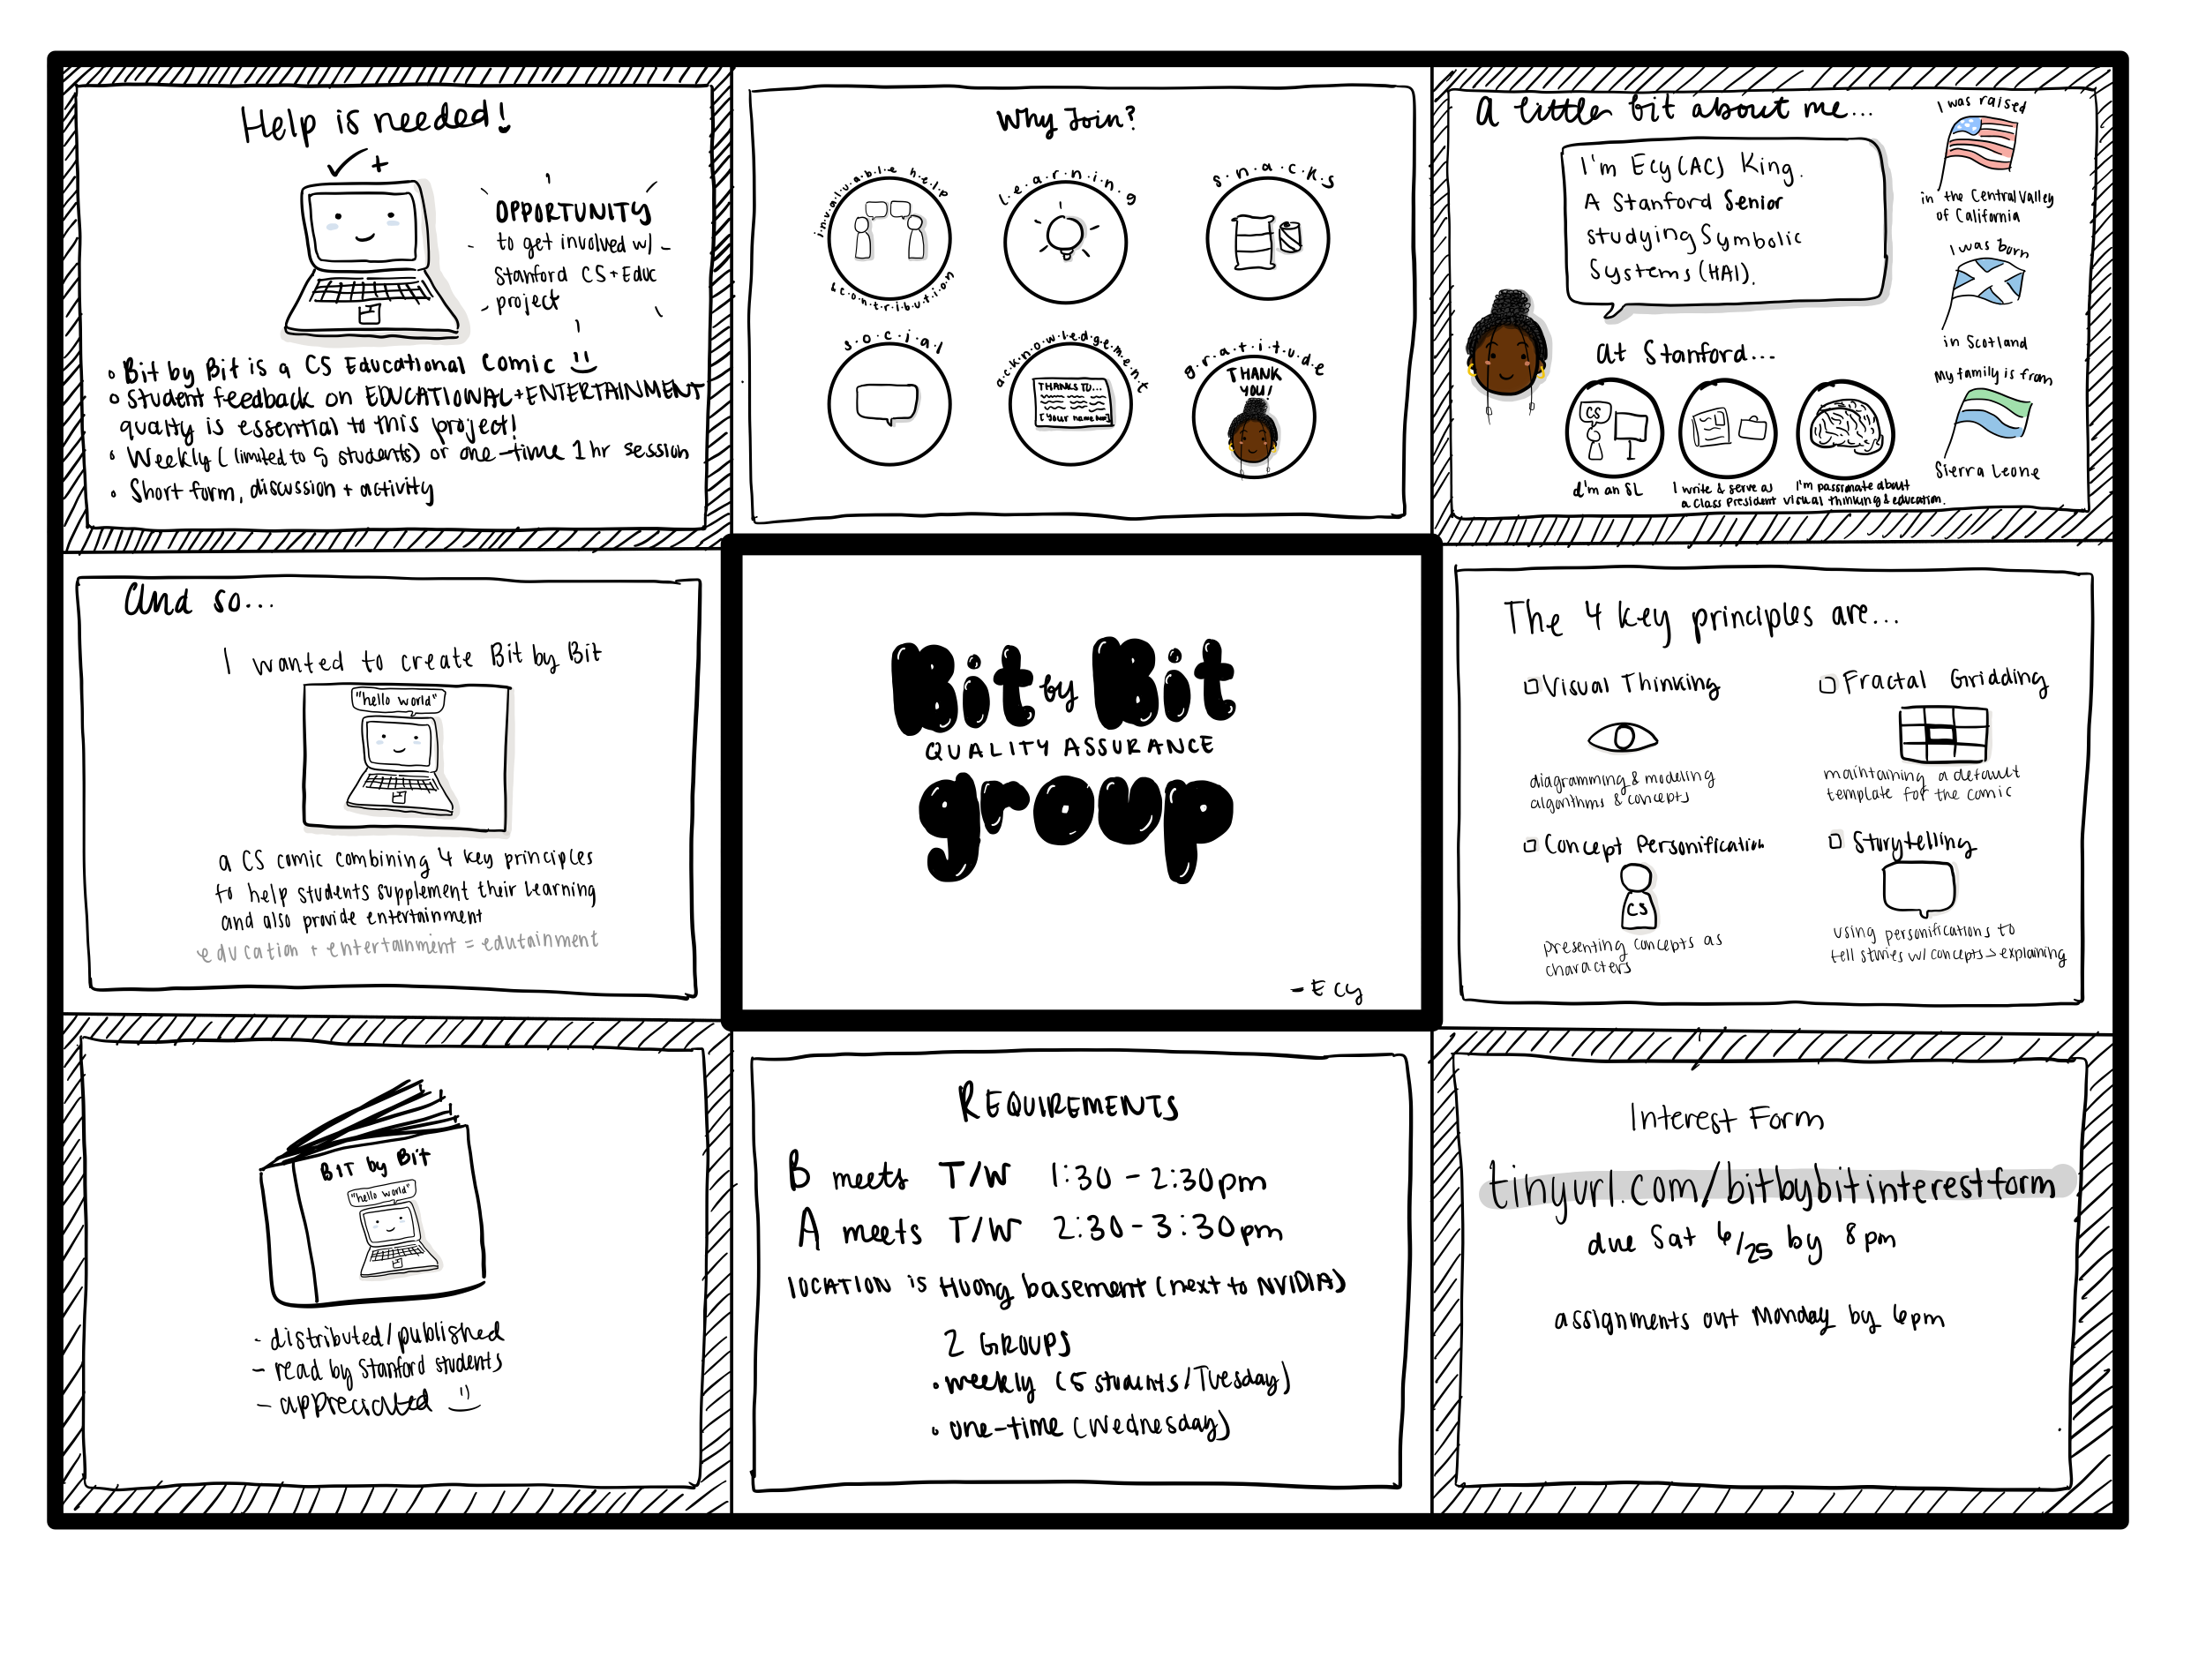 Help is needed!
OPPORTUNITY
to get involved w/
Stanford CS + Educ
project
Bit by Bit is a CS Educational Comic
Student feedback on EDUCATIONAL + ENTERTAINMENT
quality is essential to this project!
Weekly (limited to 5 students) or one-time 1 hr session
Short form, discussion + activity
Why Join?
invaluable help
& contribution
learning
snacks
social
acknowledgement
THANKS TO...
[Your name here]
gratitude
THANK
YOU!
A little bit about me...
I'm Ecy (AC) King.
A Stanford Senior
studying Symbolic
Systems (HAI).
I was raised
in the Central Valley
of California
I was born
in Scotland
My family is from
Sierra Leone
at Stanford...
CS
I'm an SL
I write & serve as
a class President
I'm passionate about
visual thinking & education.
And so...
I wanted to create Bit by Bit
"hello world"
a CS comic combining 4 key principles
to help students supplement their learning
and also provide entertainment
education + entertainment = edutainment
Bit by Bit
QUALITY ASSURANCE
group
- Ecy
The 4 key principles are...
Visual Thinking
diagramming & modeling
algorithms & concepts
Fractal Gridding
maintaining a default
template for the comic
Concept Personification
CS
presenting concepts as
characters
Storytelling
using personifications to
tell stories w/ concepts > explaining
BIT by Bit
"hello world"
- distributed/published
- read by Stanford students
- appreciated
REQUIREMENTS
B meets T/W 1:30 - 2:30pm
A meets T/W 2:30 - 3:30pm
LOCATION is Huang basement (next to NVIDIA)
2 GROUPS
weekly (5 students/Tuesday)
one-time (Wednesday)
Interest Form
tinyurl.com/bitbybitinterestform
due Sat 6/25 by 8pm
assignments out Monday by 6pm